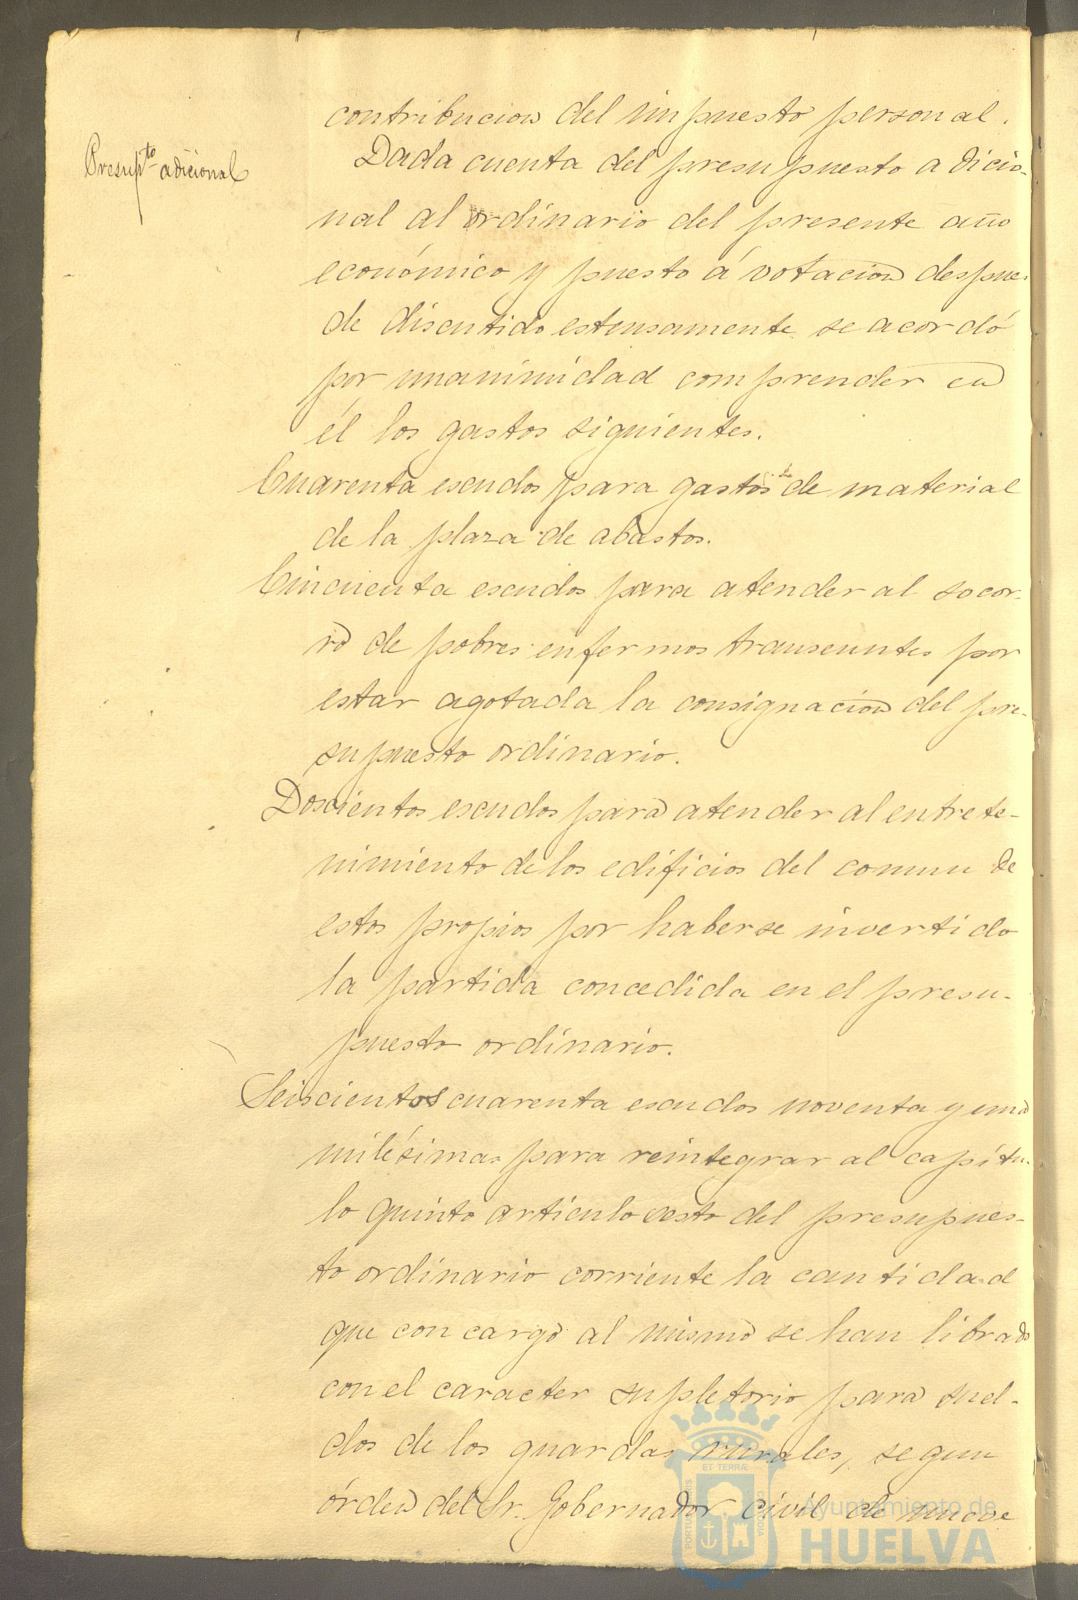 contribucion del impuesto personal.
Presupto adicional
Dada cuenta del presupuesto adicio-
nal al ordinario del presente año
económico y puesto á votacion despues
de discutido estensamente se acordó
por unanimidad comprender en
él los gastos siguientes.
Cuarenta escudos para gastos de material
de la plaza de abastos.
Cincuenta escudos para atender al socor-
ro de pobres enfermos transeuntes por
estar agotada la consignacion del pre-
supuesto ordinario.
Doscientos escudos para atender al entrete-
nimiento de los edificios del comun de
estos propios por haberse invertido
la partida concedida en el presu-
puesto ordinario.
Seiscientos cuarenta escudos noventa y una
milésimas para reintegrar al capítu-
lo quinto articulo sesto del presupues-
to ordinario corriente la cantidad
que con cargo al mismo se han librado
con el caracter supletorio para suel-
dos de los guardas rurales, segun
órden del Sr. Gobernador civil de nueve
Ayuntamiento de
HUELVA